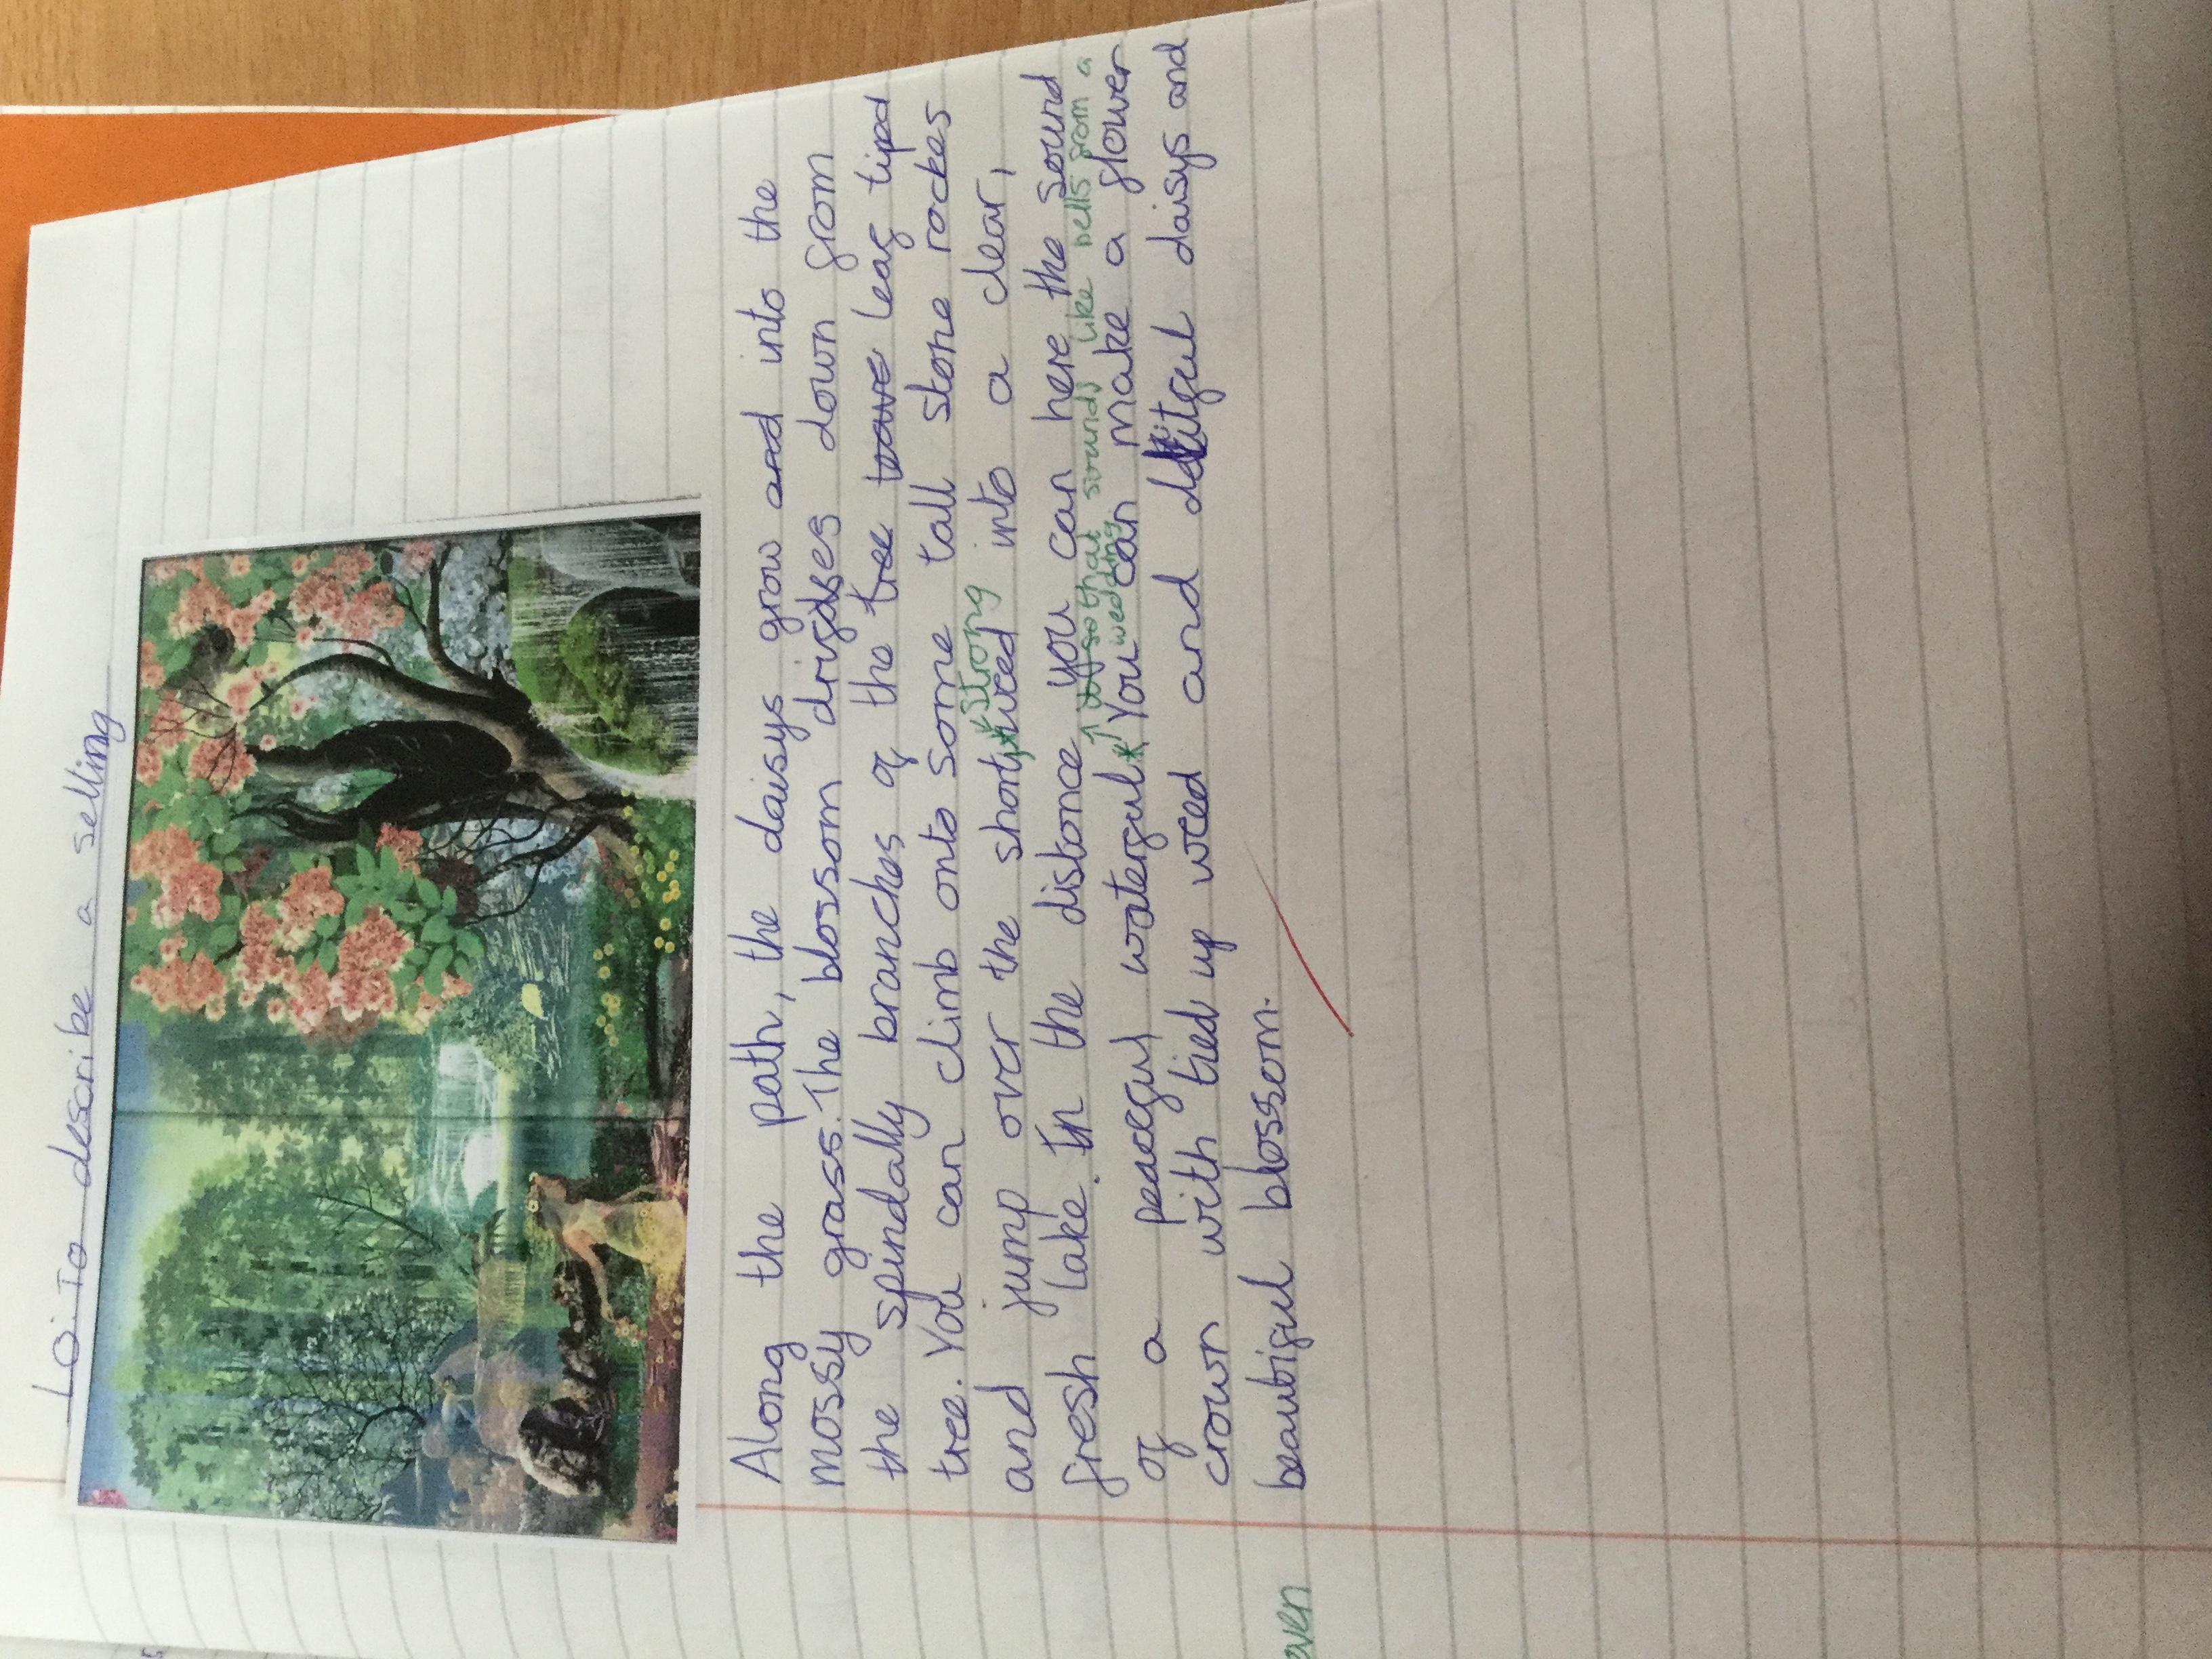 LO: To describe a setting
Along the path, the daisys grow and into the
mossy grass. The blossom driftes down from
the spindally branches of the tree leaf tiped
tree. You can climb onto some tall stone rockes
and jump over the short, weed into a clear,
strong
fresh lake. In the distance you can here the sound
so that sounds like bells from a
of a peaceful waterful. You can make a flower
wedding
crown with tied up weed and daisys and
beautiful blossom.
even